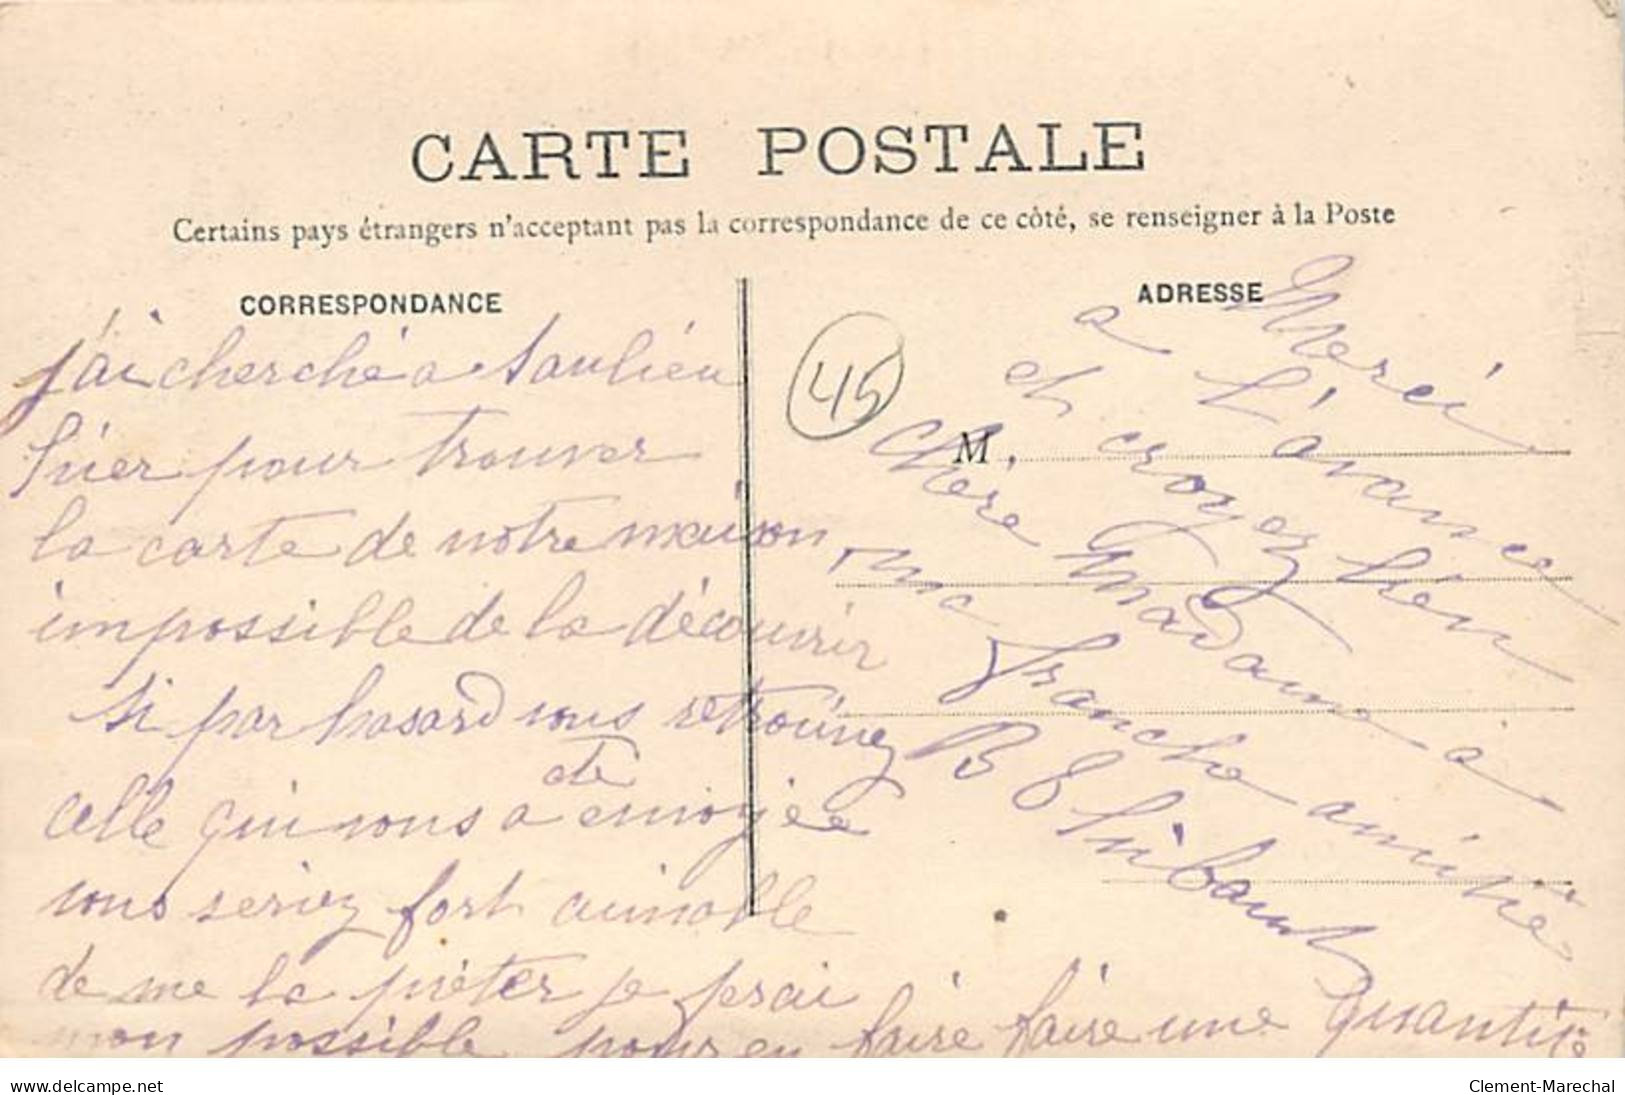 CARTE POSTALE
Certains pays étrangers n'acceptant pas la correspondance de ce côté, se renseigner à la Poste
CORRESPONDANCE
ADRESSE
j'ai cherché a Saulieu
hier pour trouver
la carte de notre maison
impossible de la découvrir
si par hasard vous retrouvez
celle qui vous a été envoyée
vous seriez fort aimable
de me la prêter je ferai
mon possible pour en faire faire une quantité
45
M.
Merci
a l'avance
et croyez bien
Chère Madame à
ma franche amitié
B Thibault
delcampe.net
Clement-Marechal